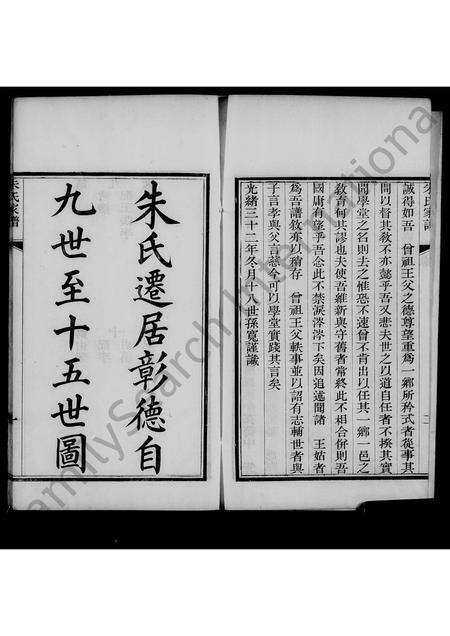 朱氏家譜
誠得如吾　曾祖王父之德尊望重爲一鄉所矜式者從事其
間以督其教不亦懿乎吾又悲夫世之以道自任者不揆其實
聞學堂之名則去之惟恐不速曾不肯出以任其一鄉一邑之
教育何其謬也夫使吾維新與守舊者常終此不相合併則吾
國庸有望乎吾念此不禁淚涔涔下矣因追述聞諸　王姑者
爲吾譜敘亦以猶存　曾祖王父軼事並以詔有志輔世者與
子言孝與父言慈今可以學堂實踐其言矣
光緒三十二年冬月十八世孫寬謹識
朱氏遷居彰德自
九世至十五世圖
朱氏家譜
FamilySearch International